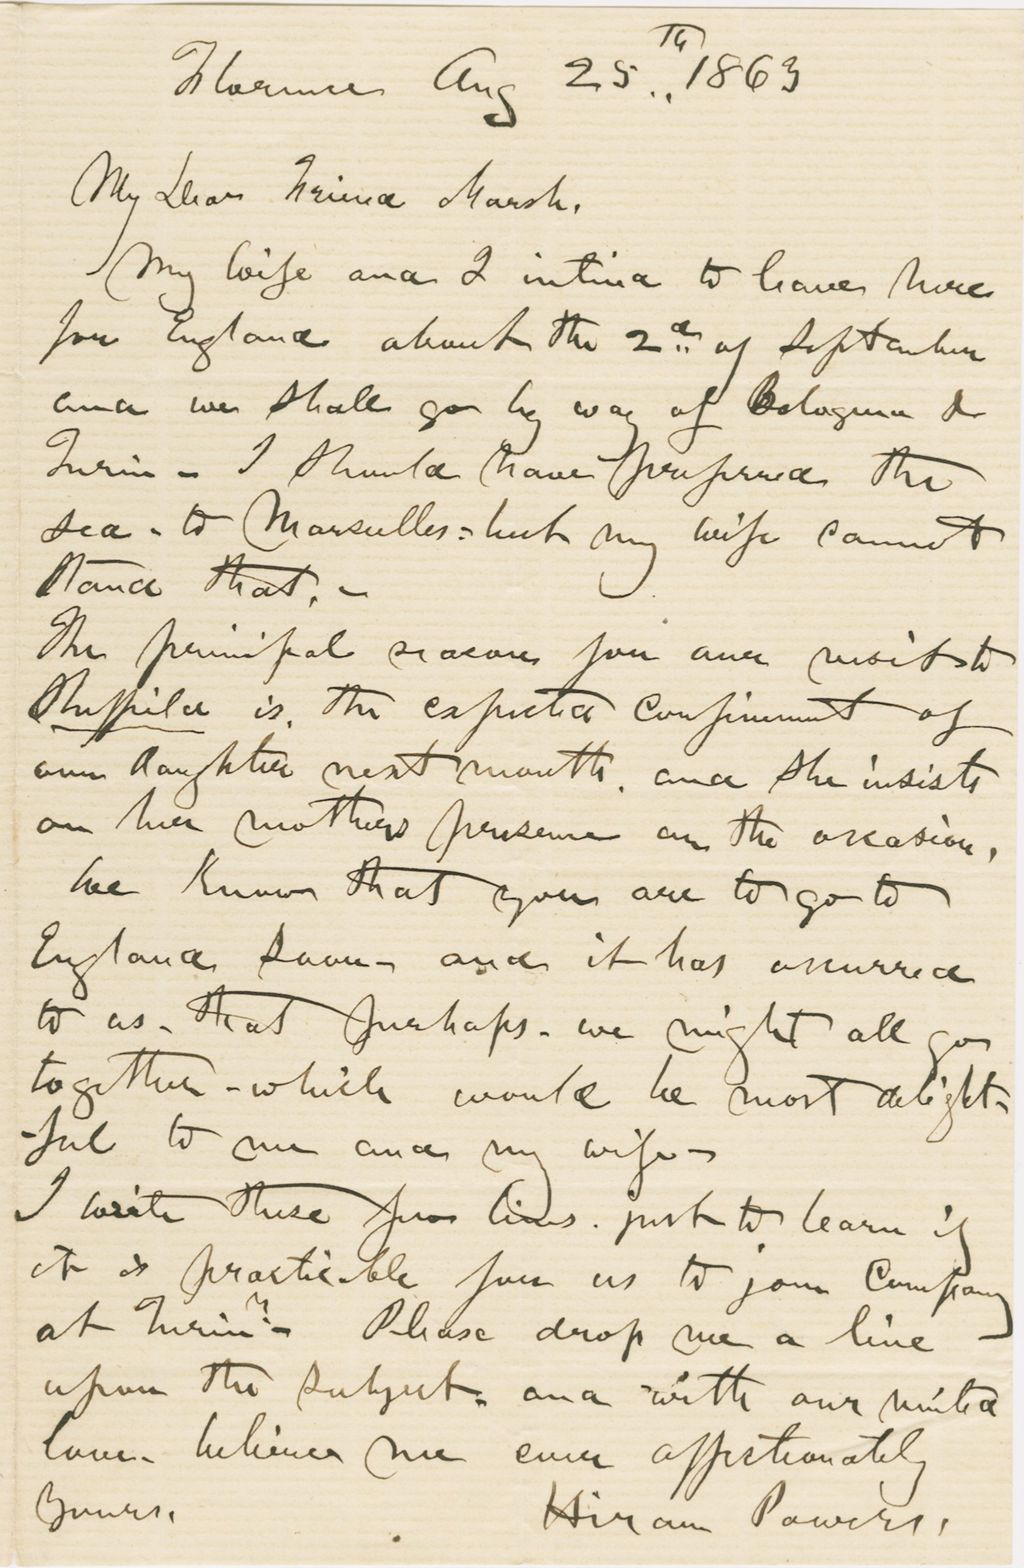 Florence Aug 25th 1863
My Dear Friend Marsh.
My wife and I intend to leave here
for England about the 2d of September
and we shall go by way of Bologna &
Turin - I should have preferred the
sea - to Marseilles - but my wife cannot
stand that. -
The principal reason for our visit to
Sheffield is, the expected confinement of
our daughter next month, and she insists
on her mothers presence on the occasion.
We know that you are to go to
England soon - and it has occurred
to us - that perhaps - we might all go
together - which would be most delight-
-ful to me and my wife -
I write these few lines. just to learn if
it is practicable for us to join Company
at Turin? - Please drop me a line
upon the subject - and with our united
love - believe me ever affectionately
Yours.    Hiram Powers.